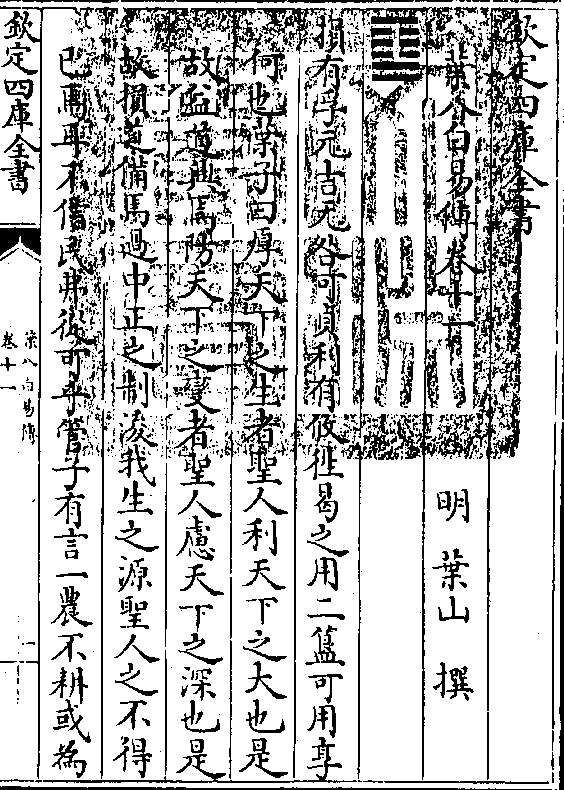 欽定四庫全書
葉八白易傳卷十一
明 葉山 撰
損有孚元吉无咎可貞利有攸往曷之用二簋可用享
何也葉子曰厚天下之生者聖人利天下之大也是
故益道興焉防天下之變者聖人慮天下之深也是
故損道備焉過中正之制浚我生之源聖人之不得
已焉耳不借民其從可乎管子有言一農不耕或為
欽定四庫全書
葉八白易傳
卷十一
一